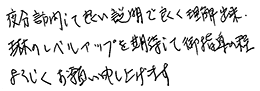 夜分部内にて長い説明で良く理解出来.
球のレベルアップを期待して御指導の程
よろしくお願い申し上げます